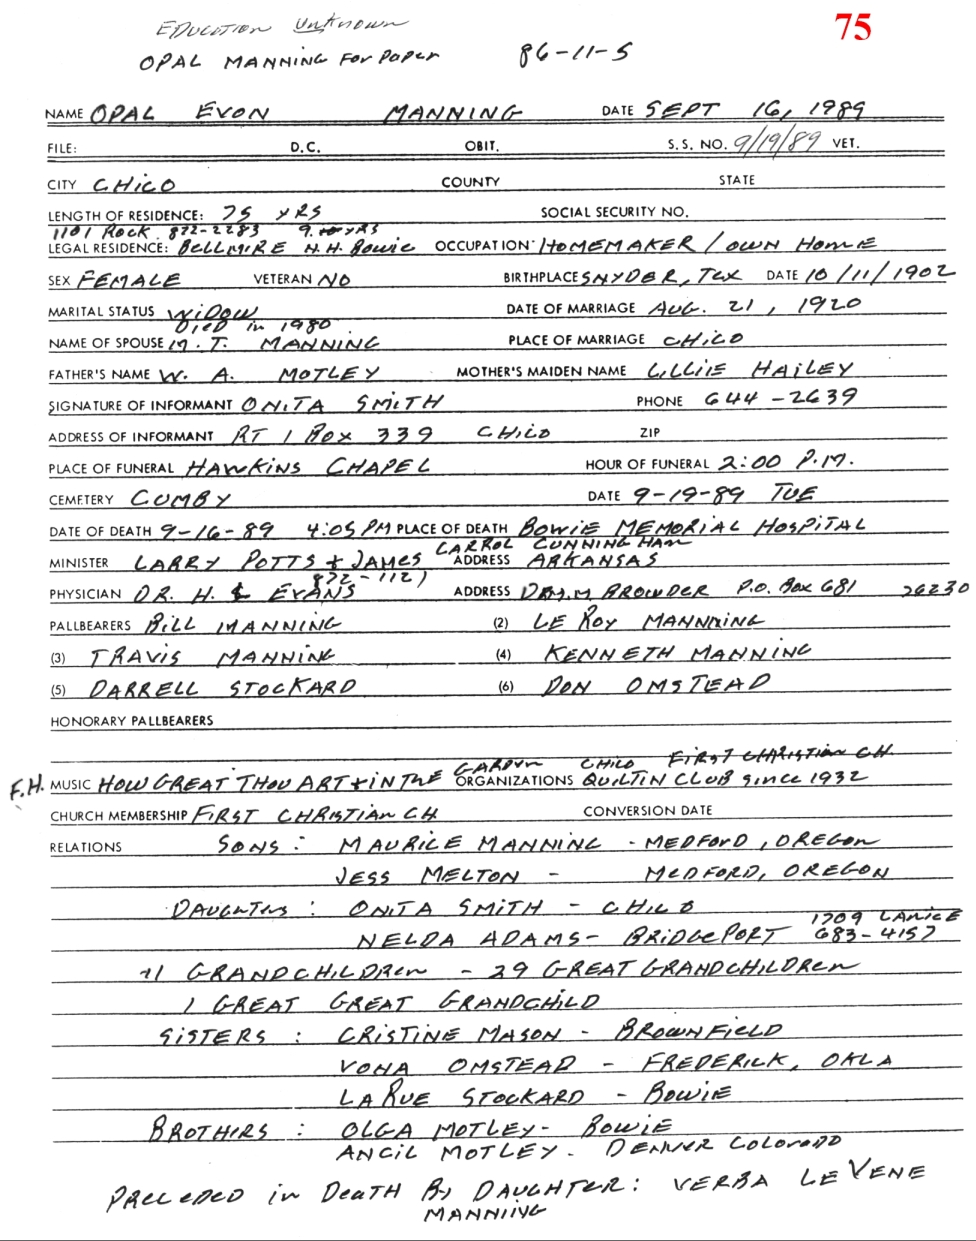 EDUCATION UNKNOWN
75
OPAL MANNING For Paper 86-11-5
NAME OPAL EVON MANNING DATE SEPT 16, 1989
FILE: D.C. OBIT. S.S. NO. 9/19/89 VET.
CITY CHICO COUNTY STATE
LENGTH OF RESIDENCE: 75 YRS SOCIAL SECURITY NO.
1101 ROCK 872-2283
LEGAL RESIDENCE: BELLMIRE N.H. Bowie OCCUPATION HOMEMAKER / OWN HOME
SEX FEMALE VETERAN NO BIRTHPLACE SNYDER, TEX DATE 10/11/1902
MARITAL STATUS WIDOW DATE OF MARRIAGE AUG. 21, 1920
DIED in 1980
NAME OF SPOUSE M. T. MANNING PLACE OF MARRIAGE CHICO
FATHER'S NAME W. A. MOTLEY MOTHER'S MAIDEN NAME LILLIE HAILEY
SIGNATURE OF INFORMANT ONITA SMITH PHONE 644-2639
ADDRESS OF INFORMANT RT 1 Box 339 CHICO ZIP
PLACE OF FUNERAL HAWKINS CHAPEL HOUR OF FUNERAL 2:00 P.M.
CEMETERY CUMBY DATE 9-19-89 TUE
DATE OF DEATH 9-16-89 4:05 PM PLACE OF DEATH BOWIE MEMORIAL HOSPITAL
CARROL CUNNINGHAM
MINISTER LARRY POTTS + JAMES ADDRESS ARKANSAS
872-1121
PHYSICIAN DR. H. EVANS ADDRESS BROWDER P.O. Box 681 76230
PALLBEARERS BILL MANNING (2) LE ROY MANNNING
(3) TRAVIS MANNING (4) KENNETH MANNING
(5) DARRELL STOCKARD (6) DON OMSTEAD
HONORARY PALLBEARERS
GARDEN CHICO FIRST CHRISTIAN CH.
F.H. MUSIC HOW GREAT THOU ART + IN THE ORGANIZATIONS QUILTIN CLUB since 1932
CHURCH MEMBERSHIP FIRST CHRISTIAN CH CONVERSION DATE
RELATIONS SONS: MAURICE MANNING - MEDFORD, OREGON
JESS MELTON - MEDFORD, OREGON
DAUGHTERS: ONITA SMITH - CHICO
1709 LANICE
NELDA ADAMS - BRIDGEPORT 683-4157
11 GRANDCHILDREN - 29 GREAT GRANDCHILDREN
1 GREAT GREAT GRANDCHILD
SISTERS: CRISTINE MASON - BROWNFIELD
VONA OMSTEAD - FREDERICK, OKLA
LA RUE STOCKARD - BOWIE
BROTHERS: OLGA MOTLEY - BOWIE
ANCIL MOTLEY - DENVER Colorado
PRECEDED in DEATH By DAUGHTER: VERBA LE VENE
MANNING